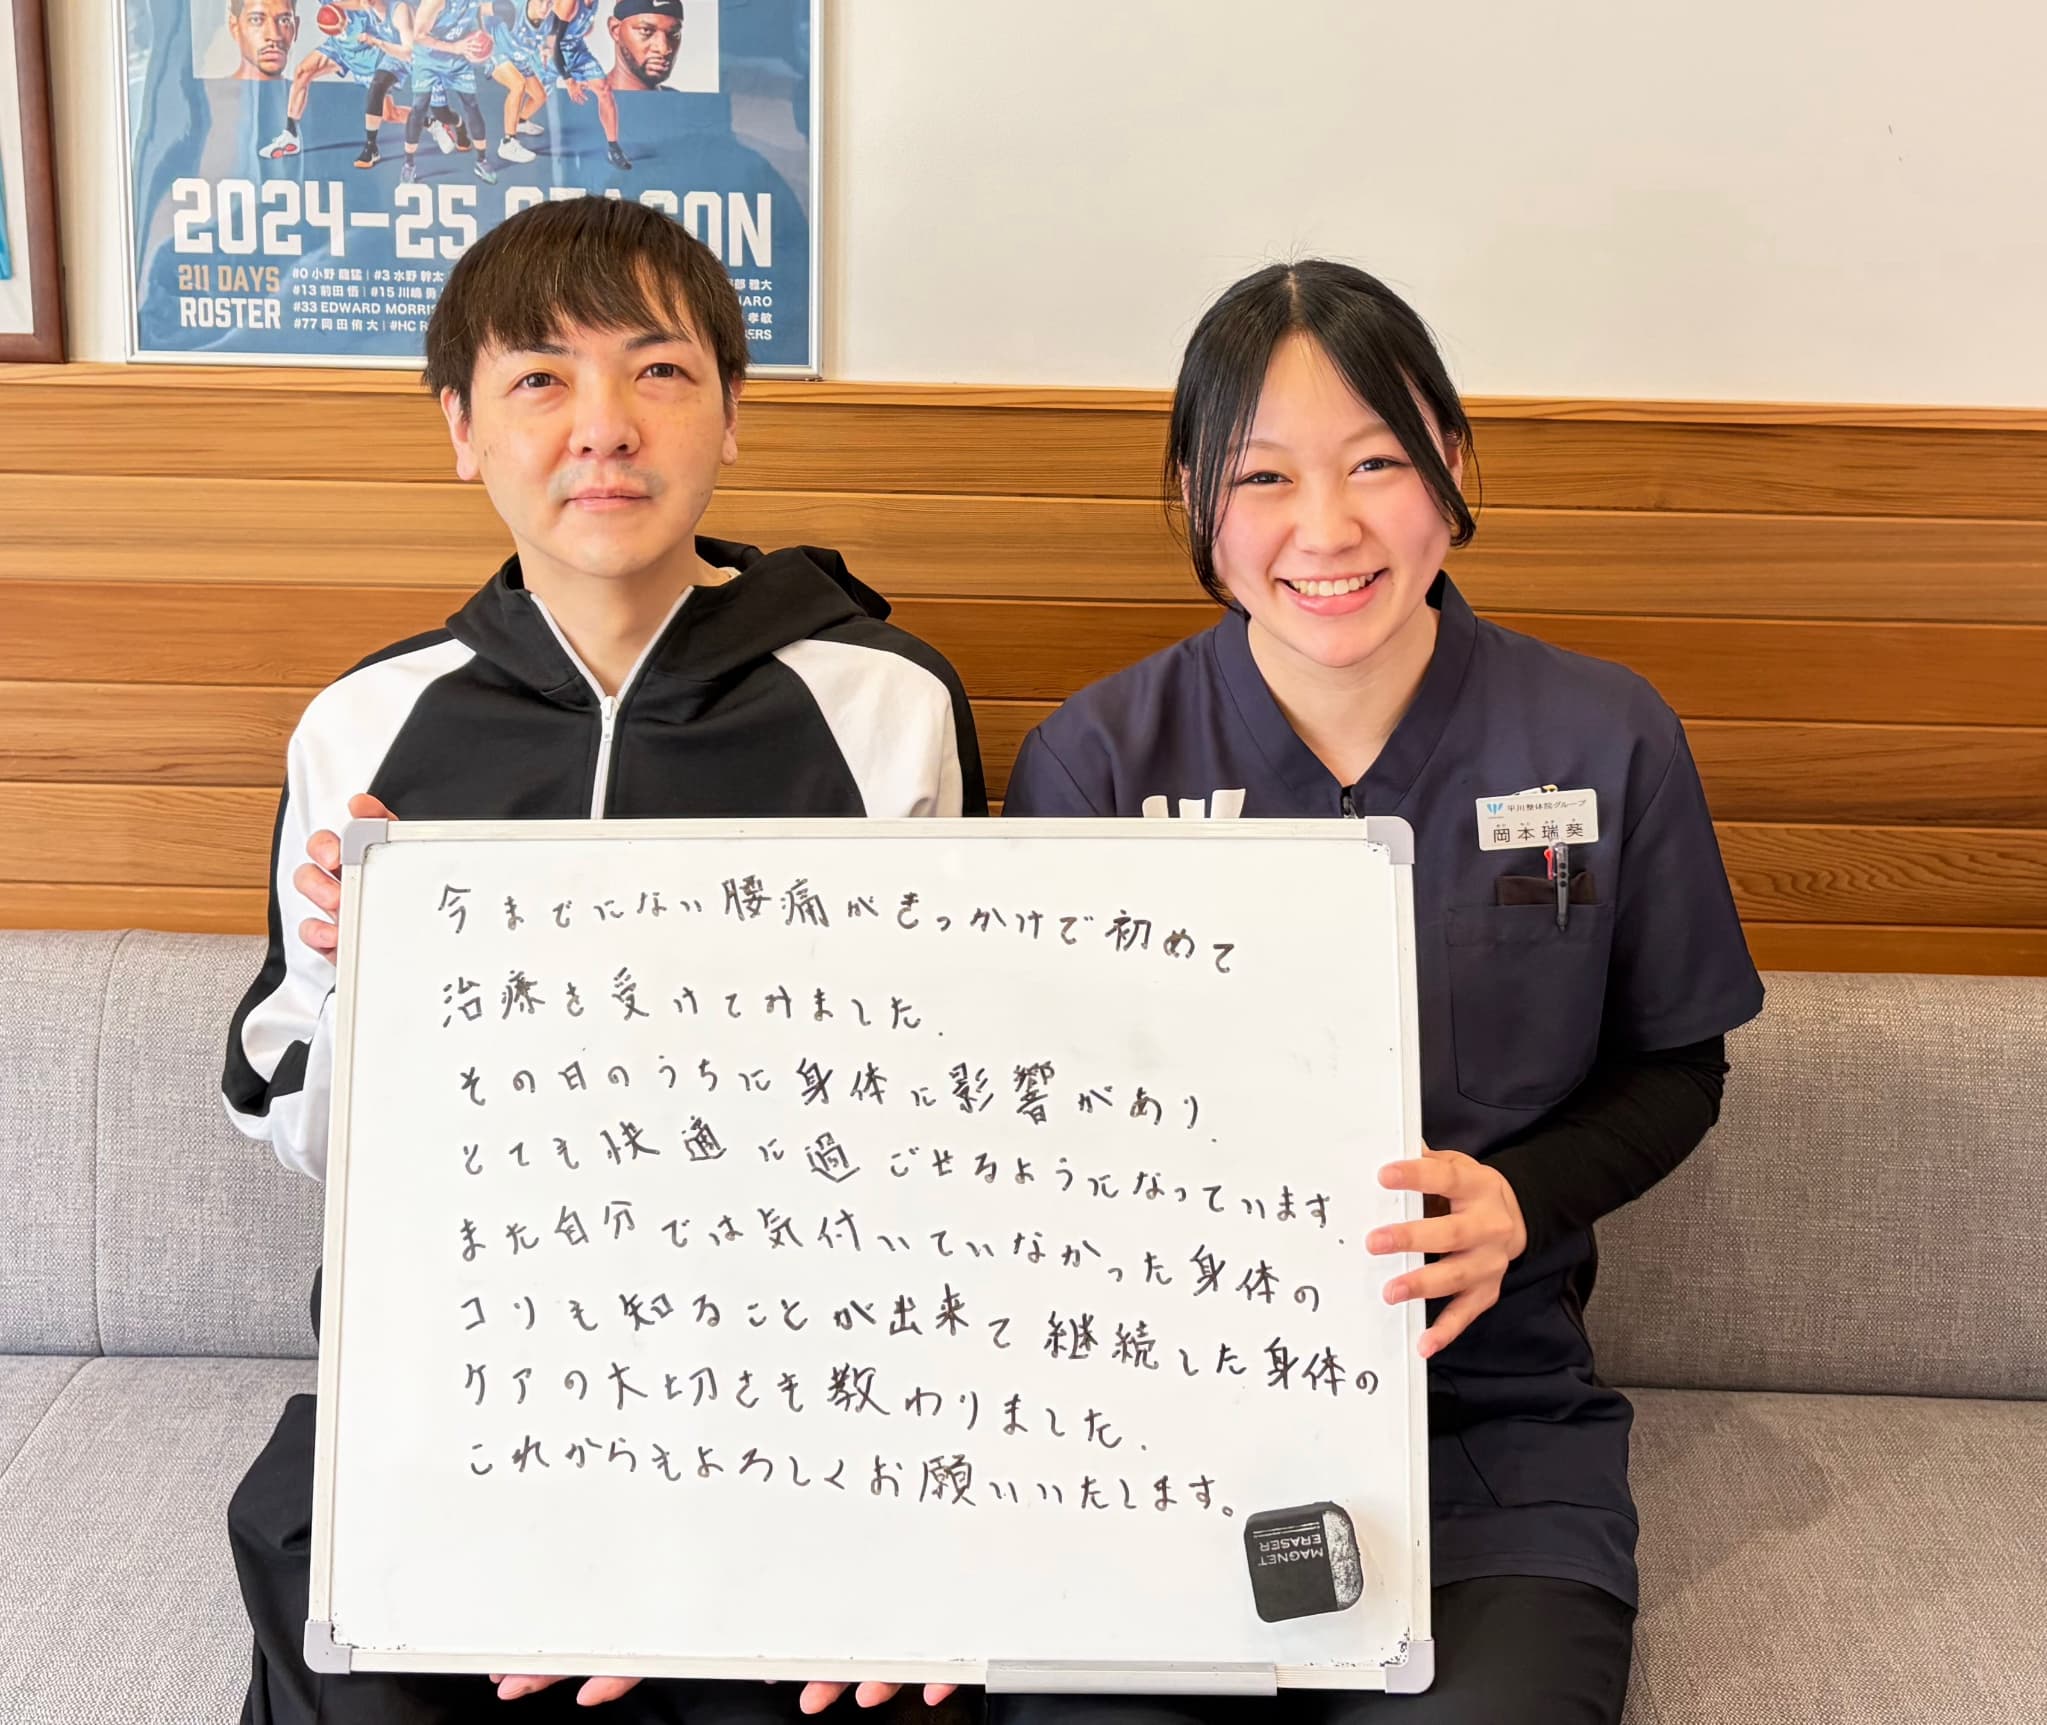 2024-25 SEASON
211 DAYS
ROSTER
#0 小野 龍猛 | #3 水野 幹太
#13 前田 悟 | #15 川嶋 勇
#33 EDWARD MORRIS
#77 岡田 侑大 | #HC R
雅大
HARO
孝敏
ERS
平川整体院グループ
岡本瑞葵
今までにない腰痛がきっかけで初めて
治療を受けてみました.
その日のうちに身体に影響があり.
とても快適に過ごせるようになっています.
また自分では気付いていなかった身体の
コリも知ることが出来て継続した身体の
ケアの大切さも教わりました.
これからもよろしくお願いいたします。
MAGNET
ERASER